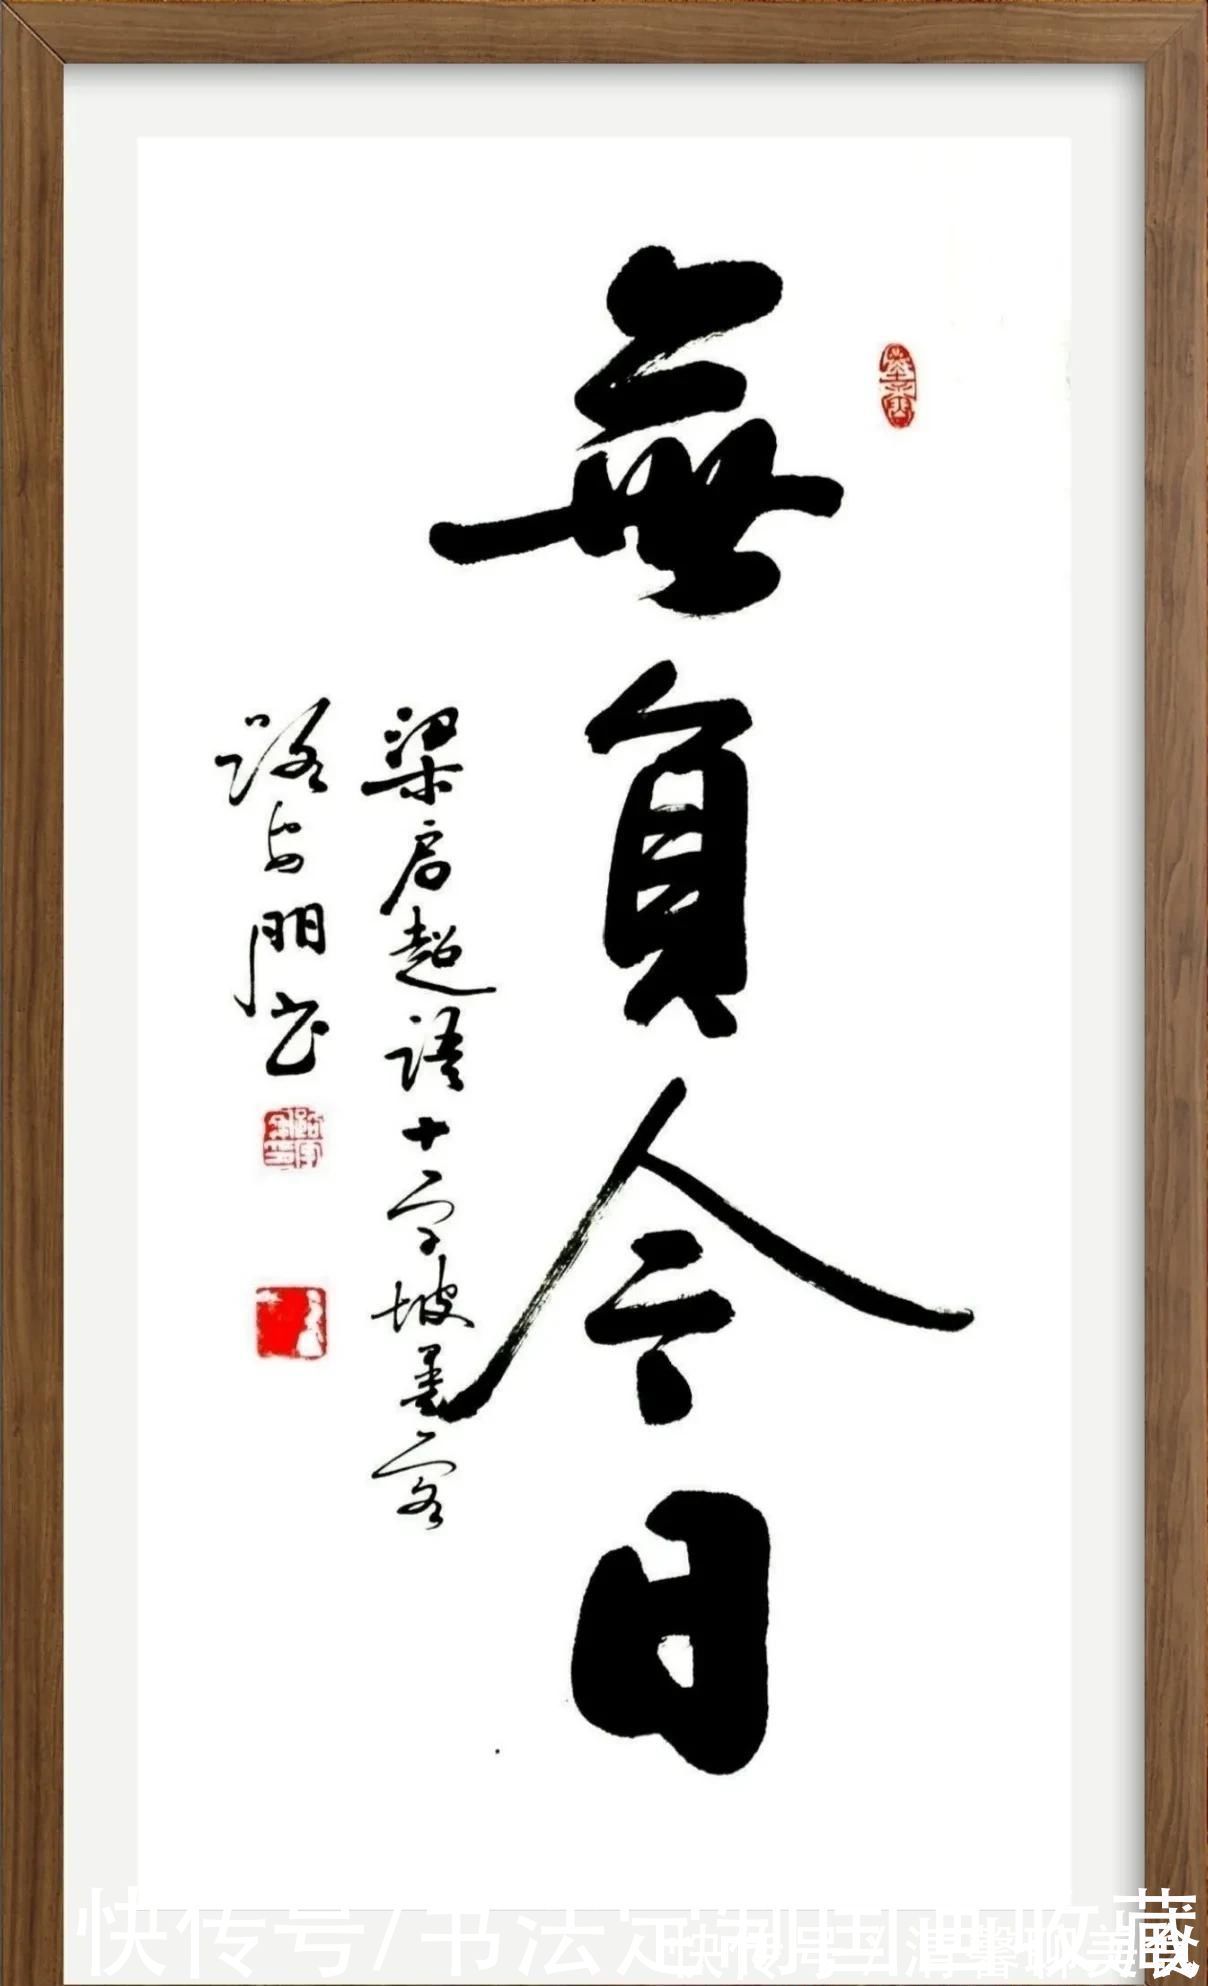 無負今日
梁启超语十字坡墨客
路安朋书
快传号/书法定制国画收藏